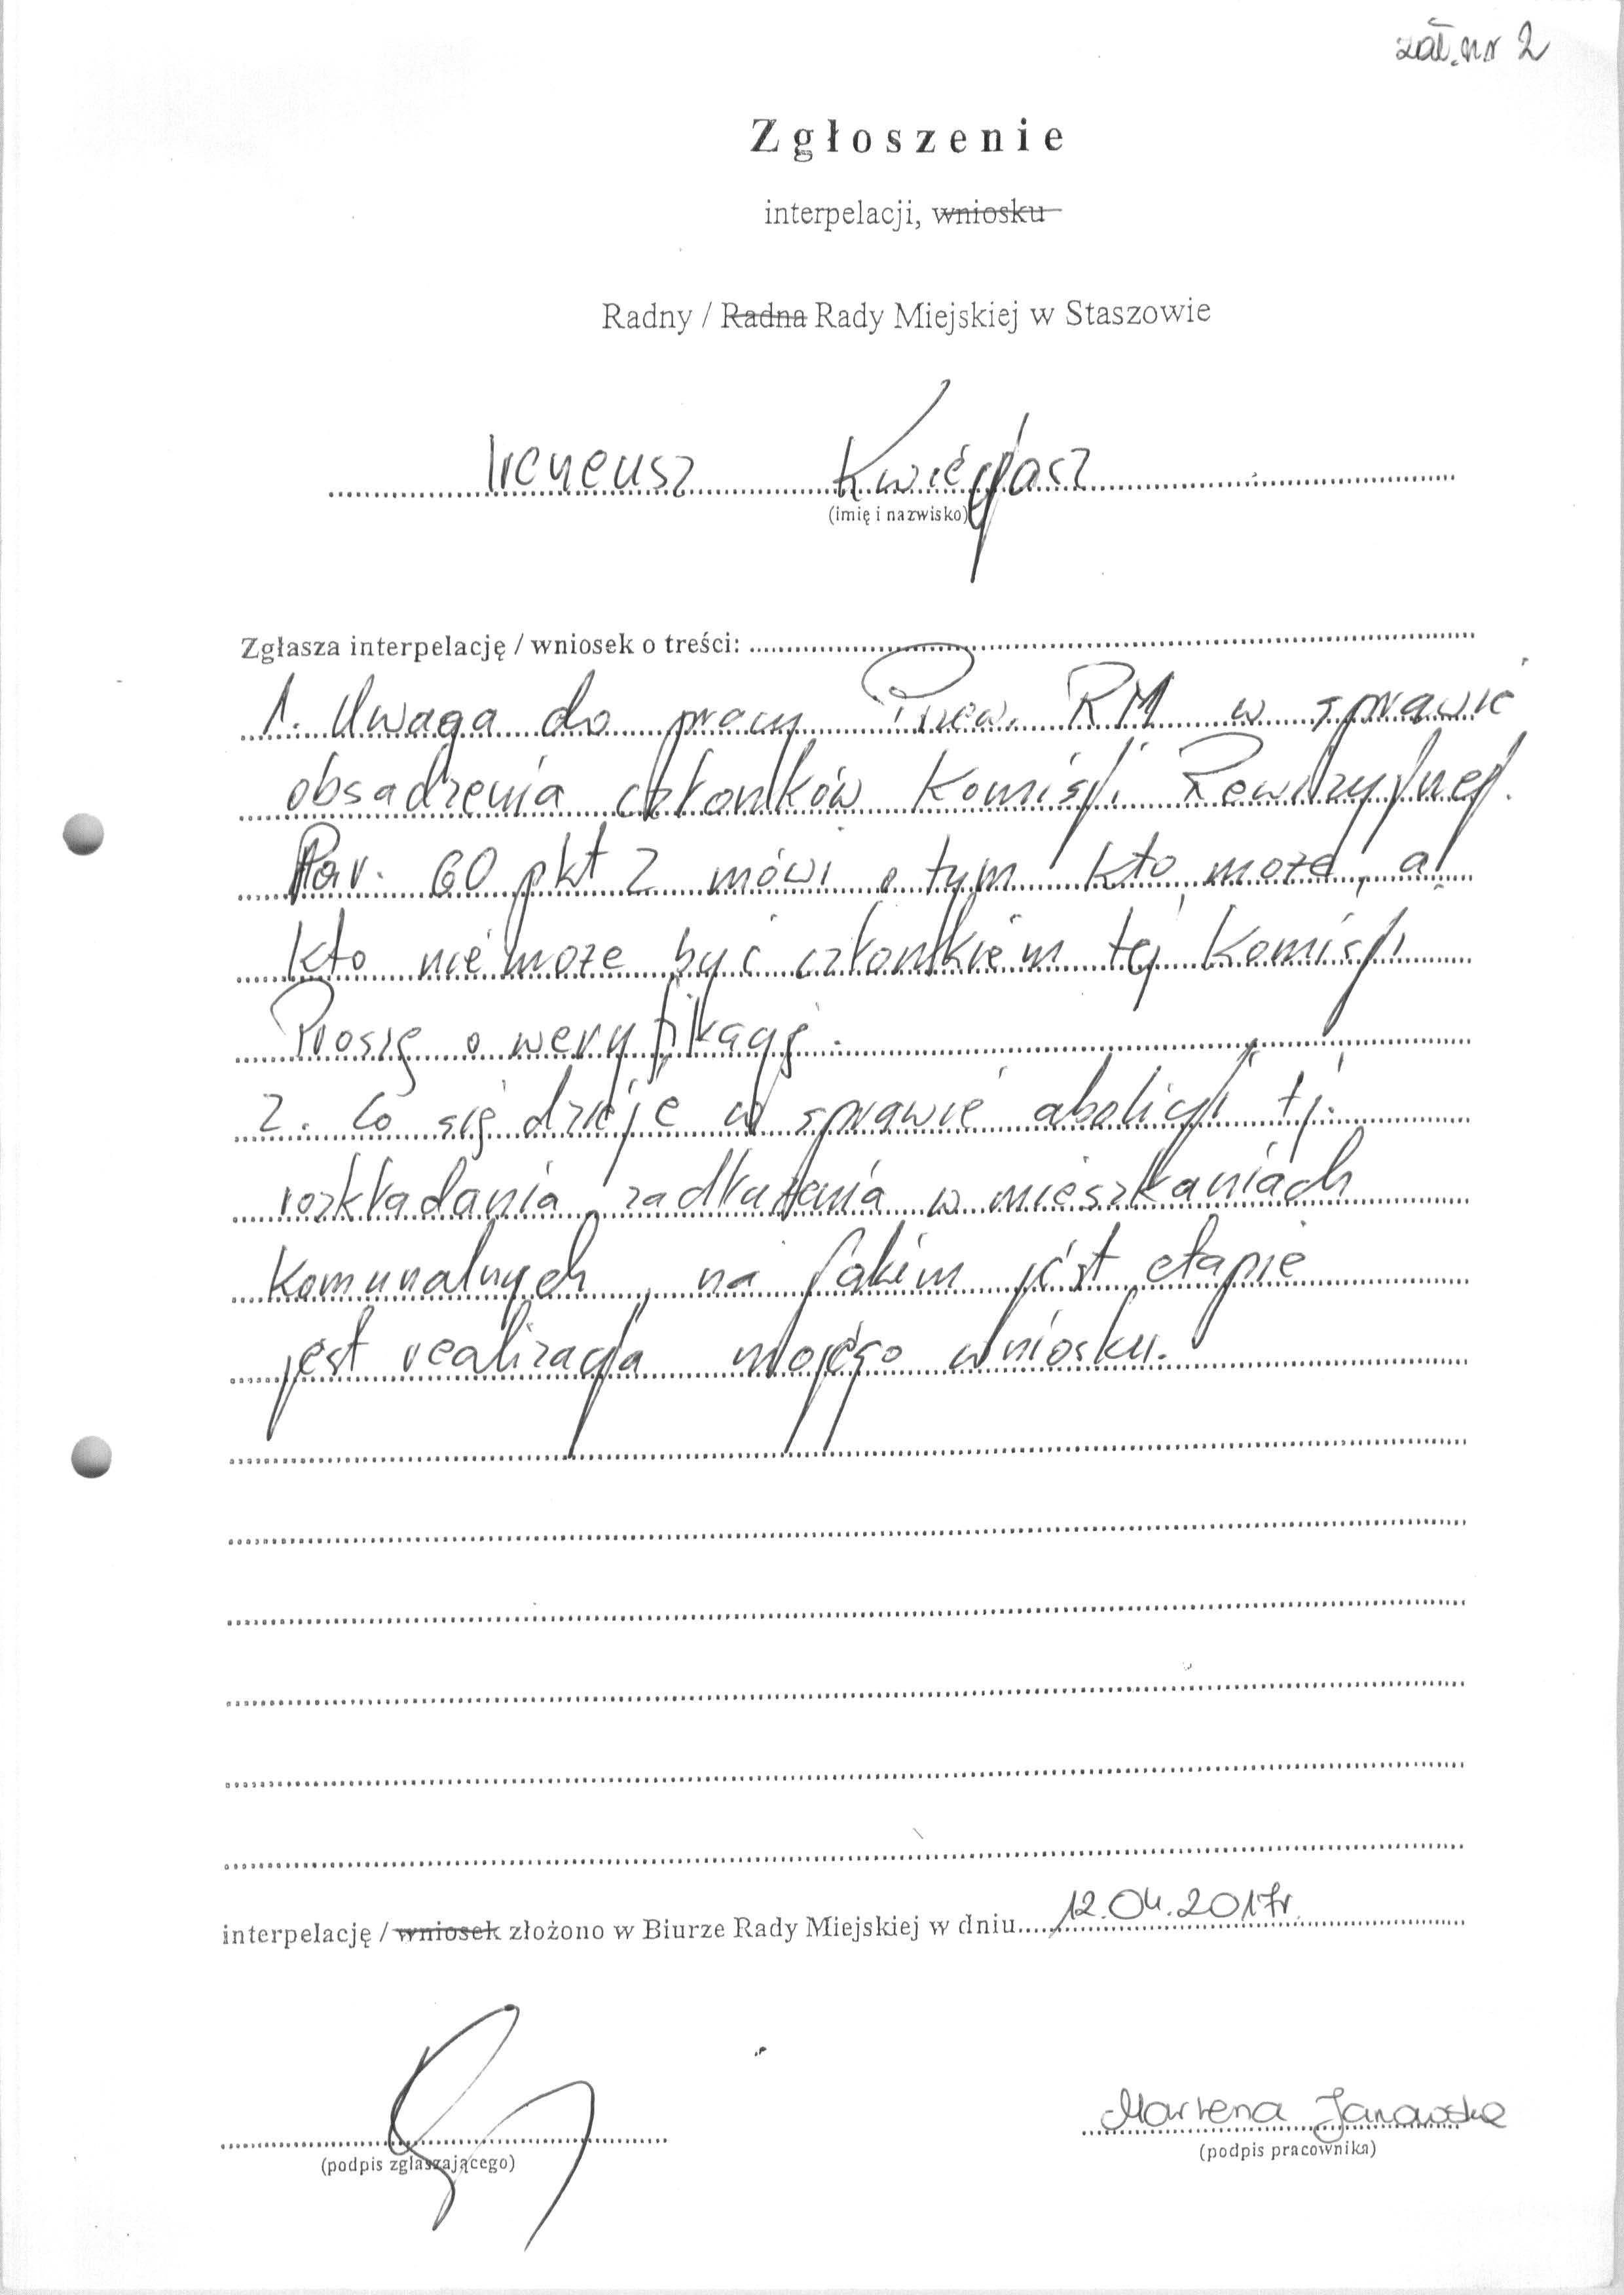 zał. nr 2
Zgłoszenie
interpelacji, wniosku
Radny / Radna Rady Miejskiej w Staszowie
Ireneusz Kwiecjasz
(imię i nazwisko)
Zgłasza interpelację / wniosek o treści:
1. Uwaga do pracy Przew. RM w sprawie
obsadzenia członków Komisji Rewizyjnej.
Par. 60 pkt 2 mówi o tym kto może, a
kto nie może być członkiem tej Komisji
Proszę o weryfikację.
2. Co się dzieje w sprawie abolicji tj.
rozkładania zadłużenia w mieszkaniach
komunalnych, na jakim jest etapie
jest realizacja mojego wniosku.
interpelację / wniosek złożono w Biurze Rady Miejskiej w dniu 12.04.2017r.
(podpis zgłaszającego)
Marlena Janowska
(podpis pracownika)